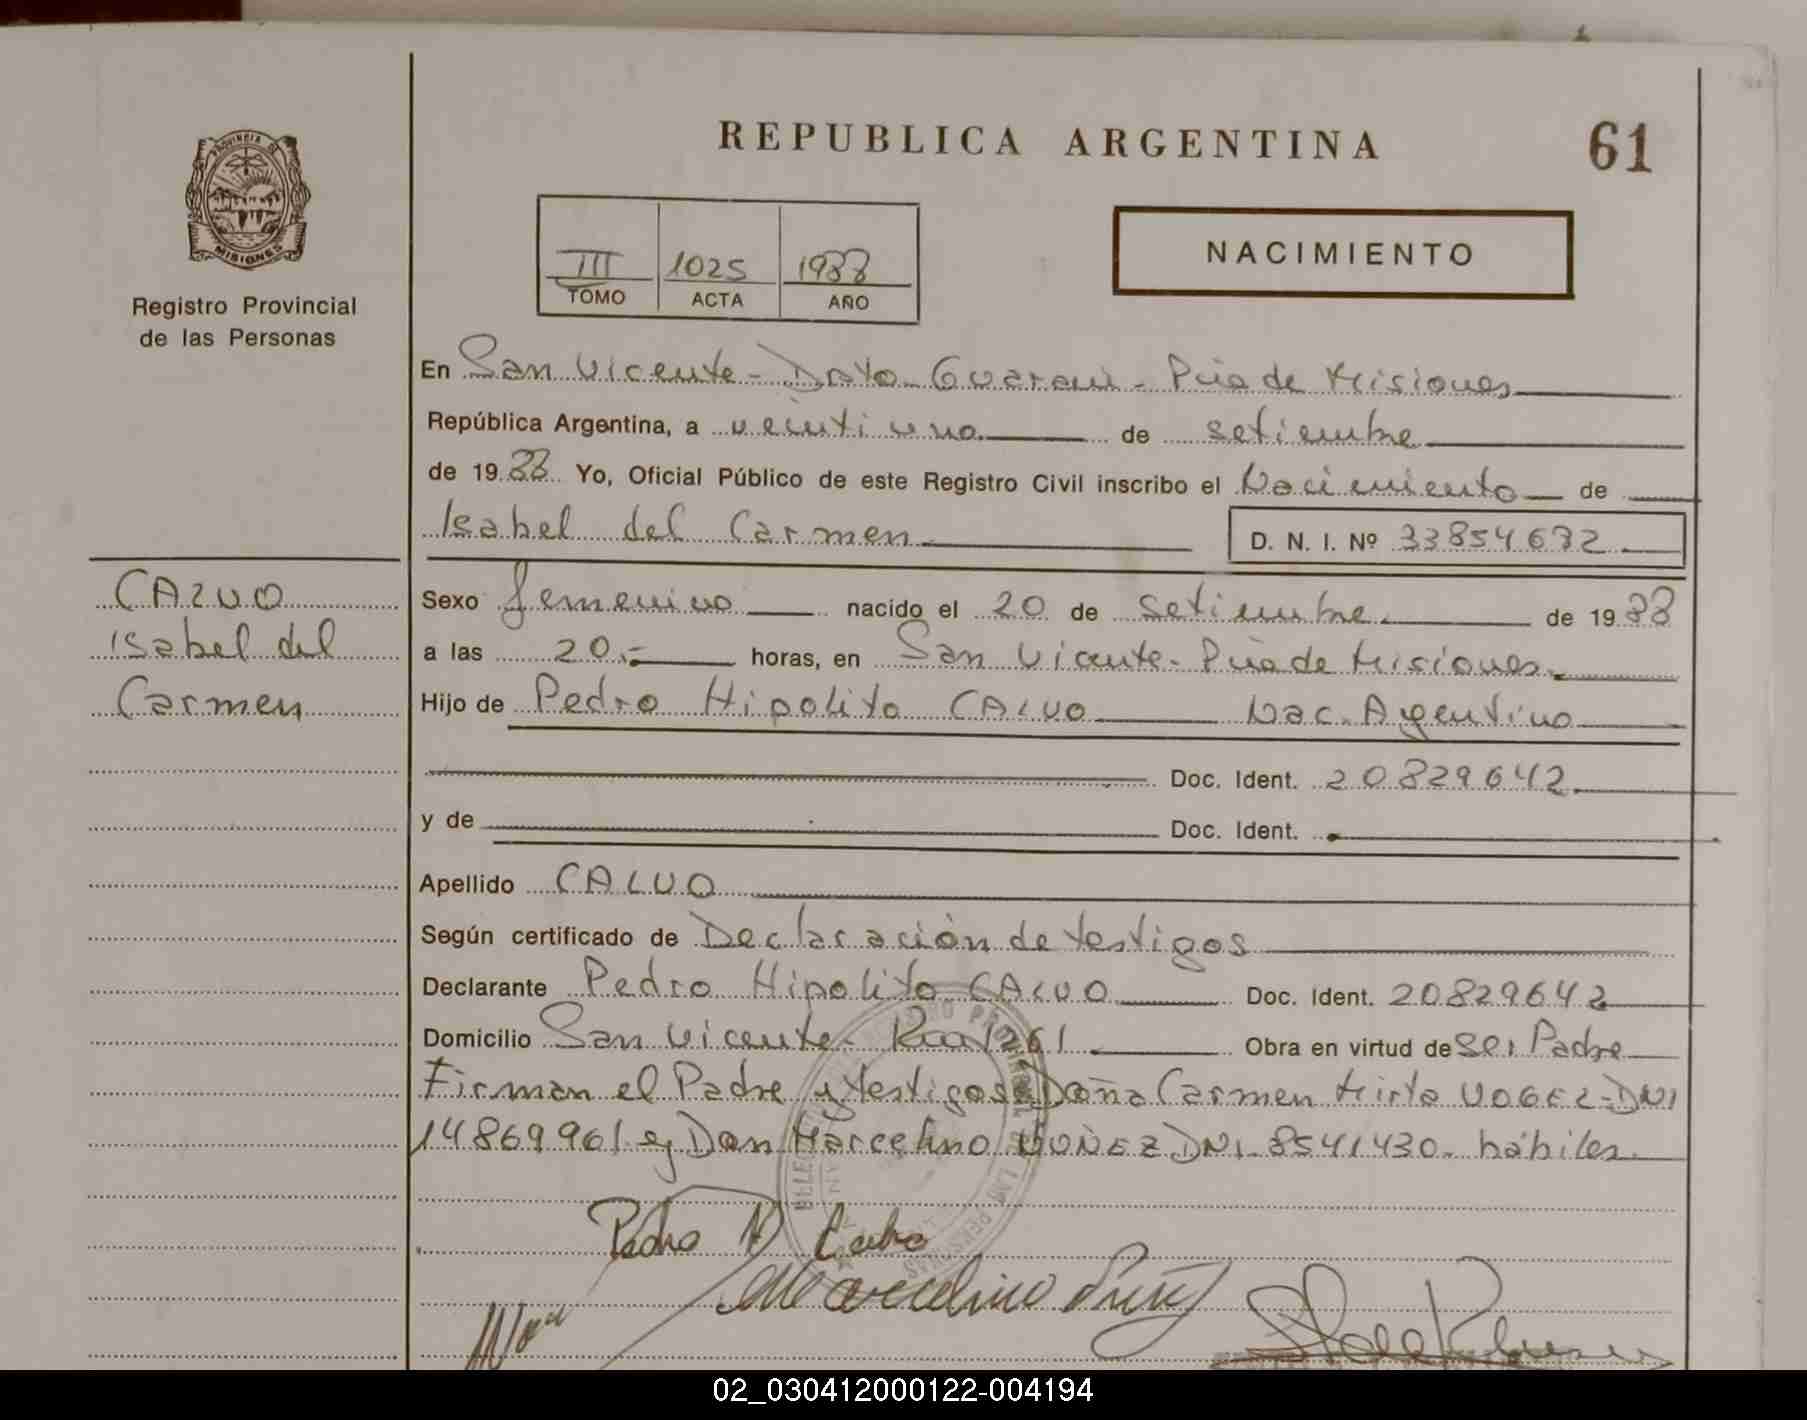 REPUBLICA ARGENTINA
61
PROVINCIA DE
MISIONES
Registro Provincial
de las Personas
III 1025 1988
TOMO ACTA AÑO
NACIMIENTO
En San Vicente - Dpto Guarani - Pcia de Misiones
República Argentina, a veintiuno de setiembre
de 1988 Yo, Oficial Público de este Registro Civil inscribo el Nacimiento de
Isabel del Carmen D. N. I. Nº 33854632
CALVO
Isabel del
Carmen
Sexo femenino nacido el 20 de setiembre de 1988
a las 20.- horas, en San Vicente - Pcia de Misiones
Hijo de Pedro Hipolito CALVO Nac. Argentino
Doc. Ident. 20829642
y de Doc. Ident.
Apellido CALVO
Según certificado de Declaración de testigos
Declarante Pedro Hipolito CALVO Doc. Ident. 20829642
Domicilio San Vicente - Km 1261 Obra en virtud de ser Padre
Firman el Padre y testigos Doña Carmen Mirta VOGEL - DNI
14869961 y Don Marcelino NUÑEZ DNI. 8541430. hábiles.
REGISTRO PROVINCIAL DE LAS PERSONAS
Pedro H Calvo
Marcelino
02_030412000122-004194